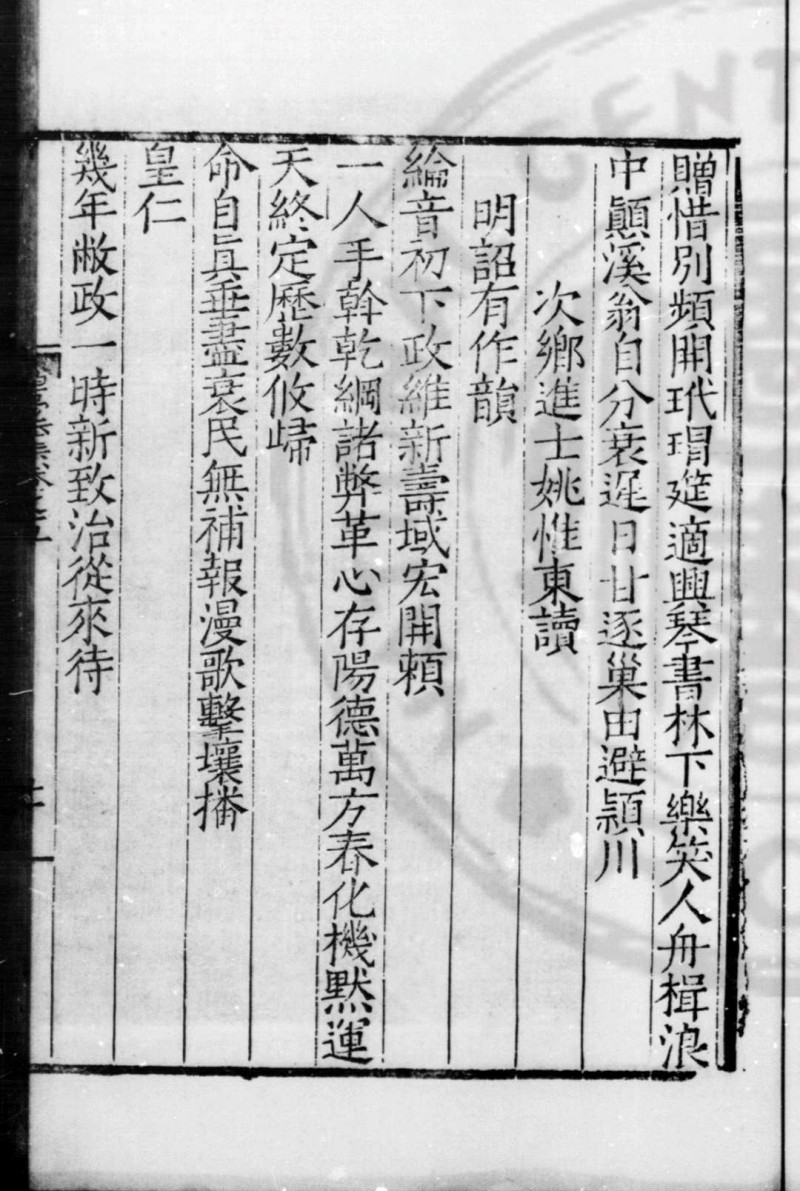 贈惜別頻開玳瑁筵適興琴書林下樂笑人舟楫浪
中顛溪翁自分衰遲日甘逐巢由避潁川
次鄉進士姚惟東讀
明詔有作韻
綸音初下政維新壽域宏開賴
一人手斡乾綱諸弊革心存陽德萬方春化機默運
天終定歷數攸歸
命自眞垂盡衰民無補報漫歌擊壤播
皇仁
幾年敝政一時新致治從來待